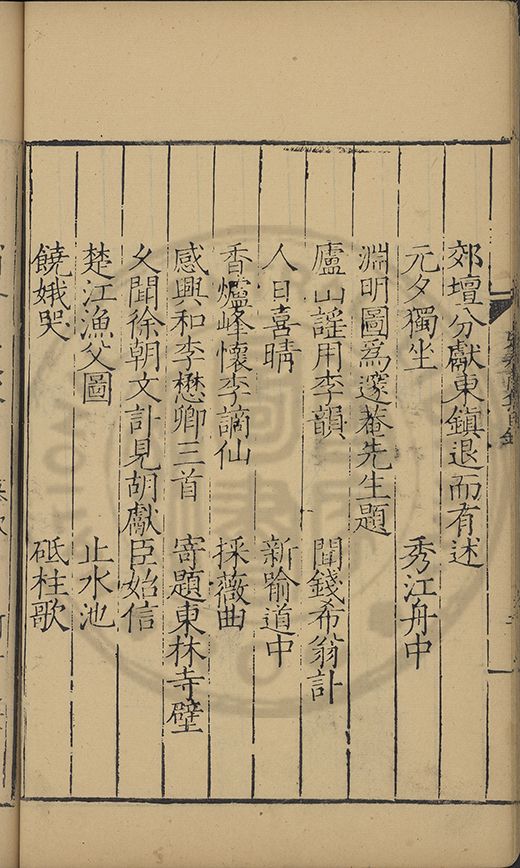 郊壇分獻東鎮退而有述
元夕獨坐　秀江舟中
淵明圖爲邃菴先生題
廬山謠用李韻　聞錢希翁訃
人日喜晴　新喻道中
香爐峰懷李謫仙　採薇曲
感興和李懋卿三首　寄題東林寺壁
久聞徐朝文訃見胡獻臣始信
楚江漁父圖　止水池
饒娥哭　砥柱歌